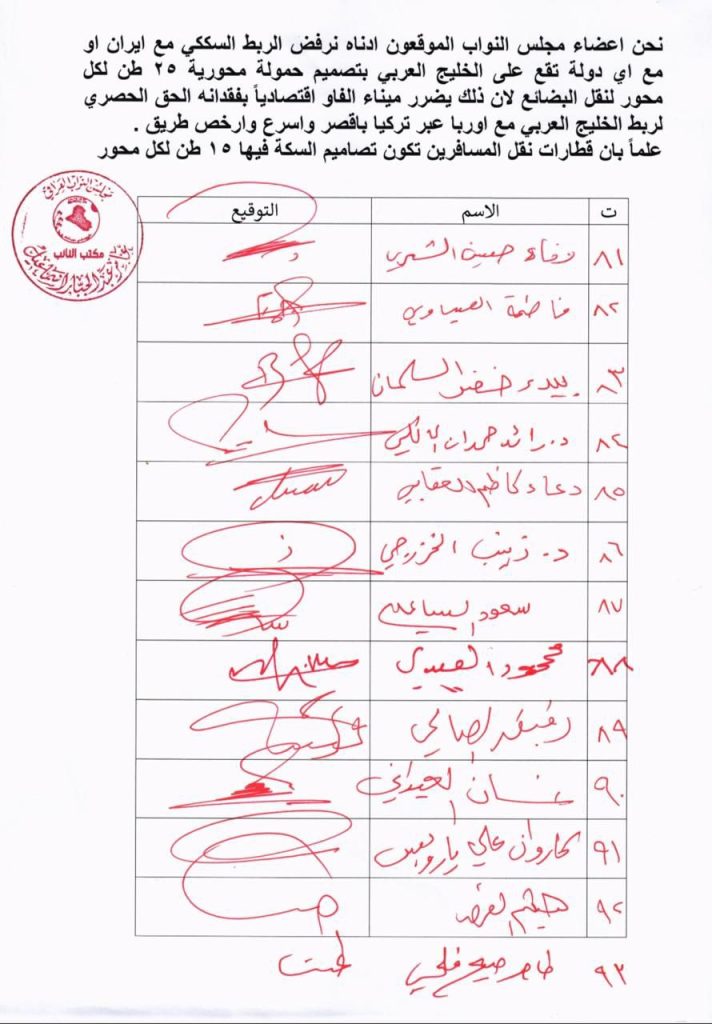 نحن اعضاء مجلس النواب الموقعون ادناه نرفض الربط السككي مع ايران او
مع اي دولة تقع على الخليج العربي بتصميم حمولة محورية ٢٥ طن لكل
محور لنقل البضائع لان ذلك يضرر ميناء الفاو اقتصادياً بفقدانه الحق الحصري
لربط الخليج العربي مع اوربا عبر تركيا باقصر واسرع وارخص طريق .
علماً بان قطارات نقل المسافرين تكون تصاميم السكة فيها ١٥ طن لكل محور
مجلس النواب العراقي
مكتب النائب
ت الاسم التوقيع
٨١ حسين الشمري
٨٢ فاطمة العيساوي
٨٣ السلمان
٨٤ د. رائد حمدان المالكي
٨٥ دعاء كاظم العقابي
٨٦ د. زينب الخزرجي
٨٧ سعود الساعدي
٨٨ محمود
٨٩ الصالحي
٩٠ غسان العيداني
٩١ كاروان علي يارويس
٩٢ هيثم
٩٣